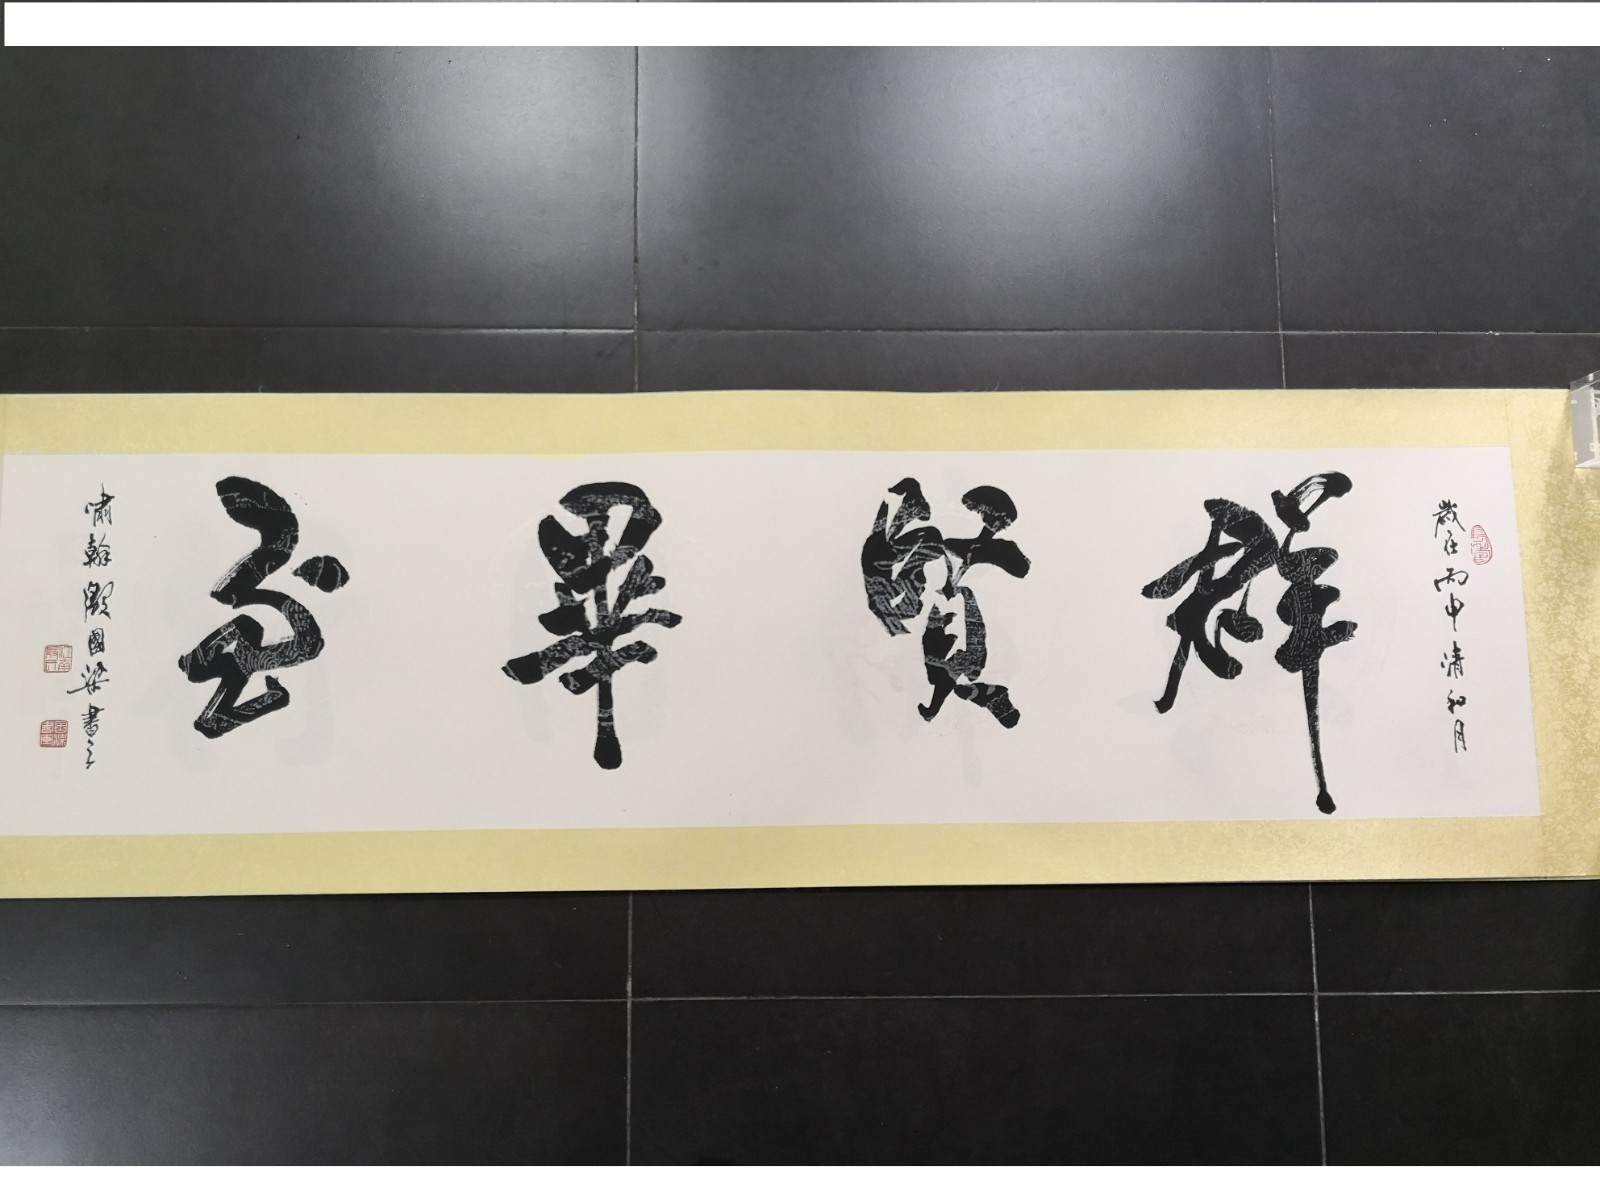 歲在丙申清和月
群賢畢至
嘯翰 國梁書之